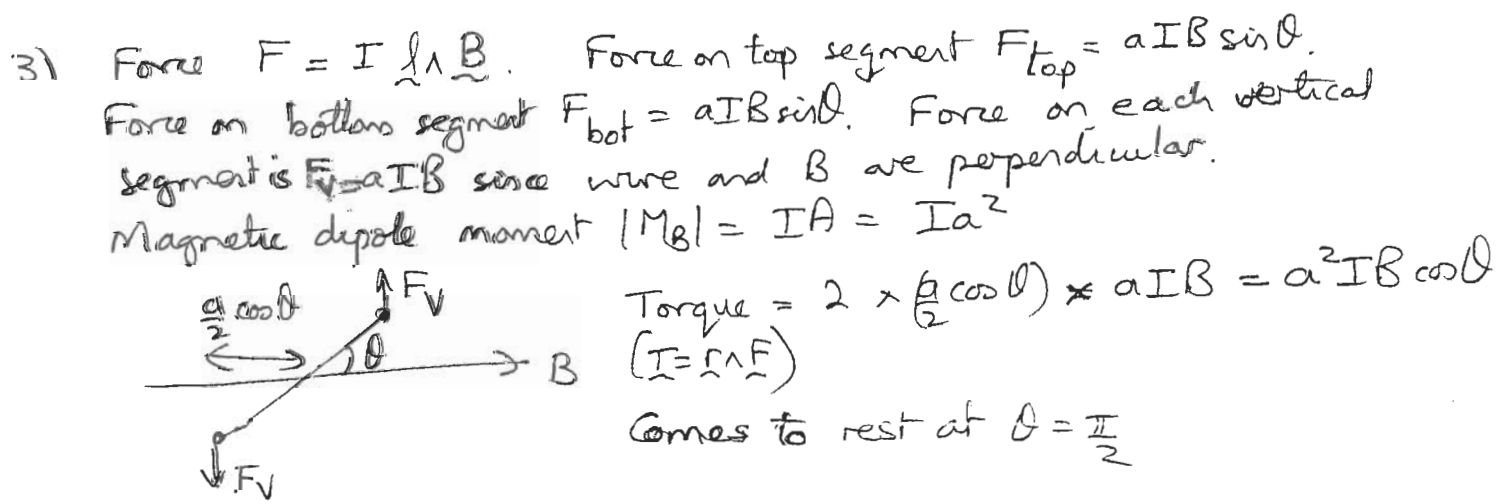 3) Force F = I l∧B. Force on top segment F_top = aIB sinθ.
Force on bottom segment F_bot = aIB sinθ. Force on each vertical
segment is F_V = aIB since wire and B are perpendicular.
Magnetic dipole moment |M_B| = IA = Ia²
a/2 cosθ
F_V
θ
B
F_V
Torque = 2 × (a/2 cosθ) × aIB = a²IB cosθ
(T = r∧F)
Comes to rest at θ = π/2